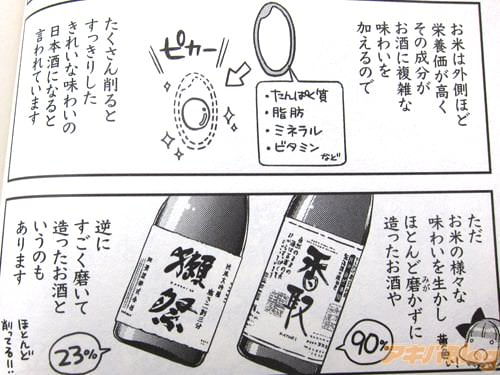 お米は外側ほど
栄養価が高く
その成分が
お酒に複雑な
味わいを
加えるので
・たんぱく質
・脂肪
・ミネラル
・ビタミン
など
ピカー
たくさん削ると
すっきりした
きれいな味わいの
日本酒になると
言われています
ただ
お米の様々な
味わいを生かし
ほとんど磨かずに
みが
造ったお酒や
黄色い!
90%
香取
獺祭
23%
逆に
すごく磨いて
造ったお酒と
いうのも
あります
ほとんど
削ってる!!
アキバBlog